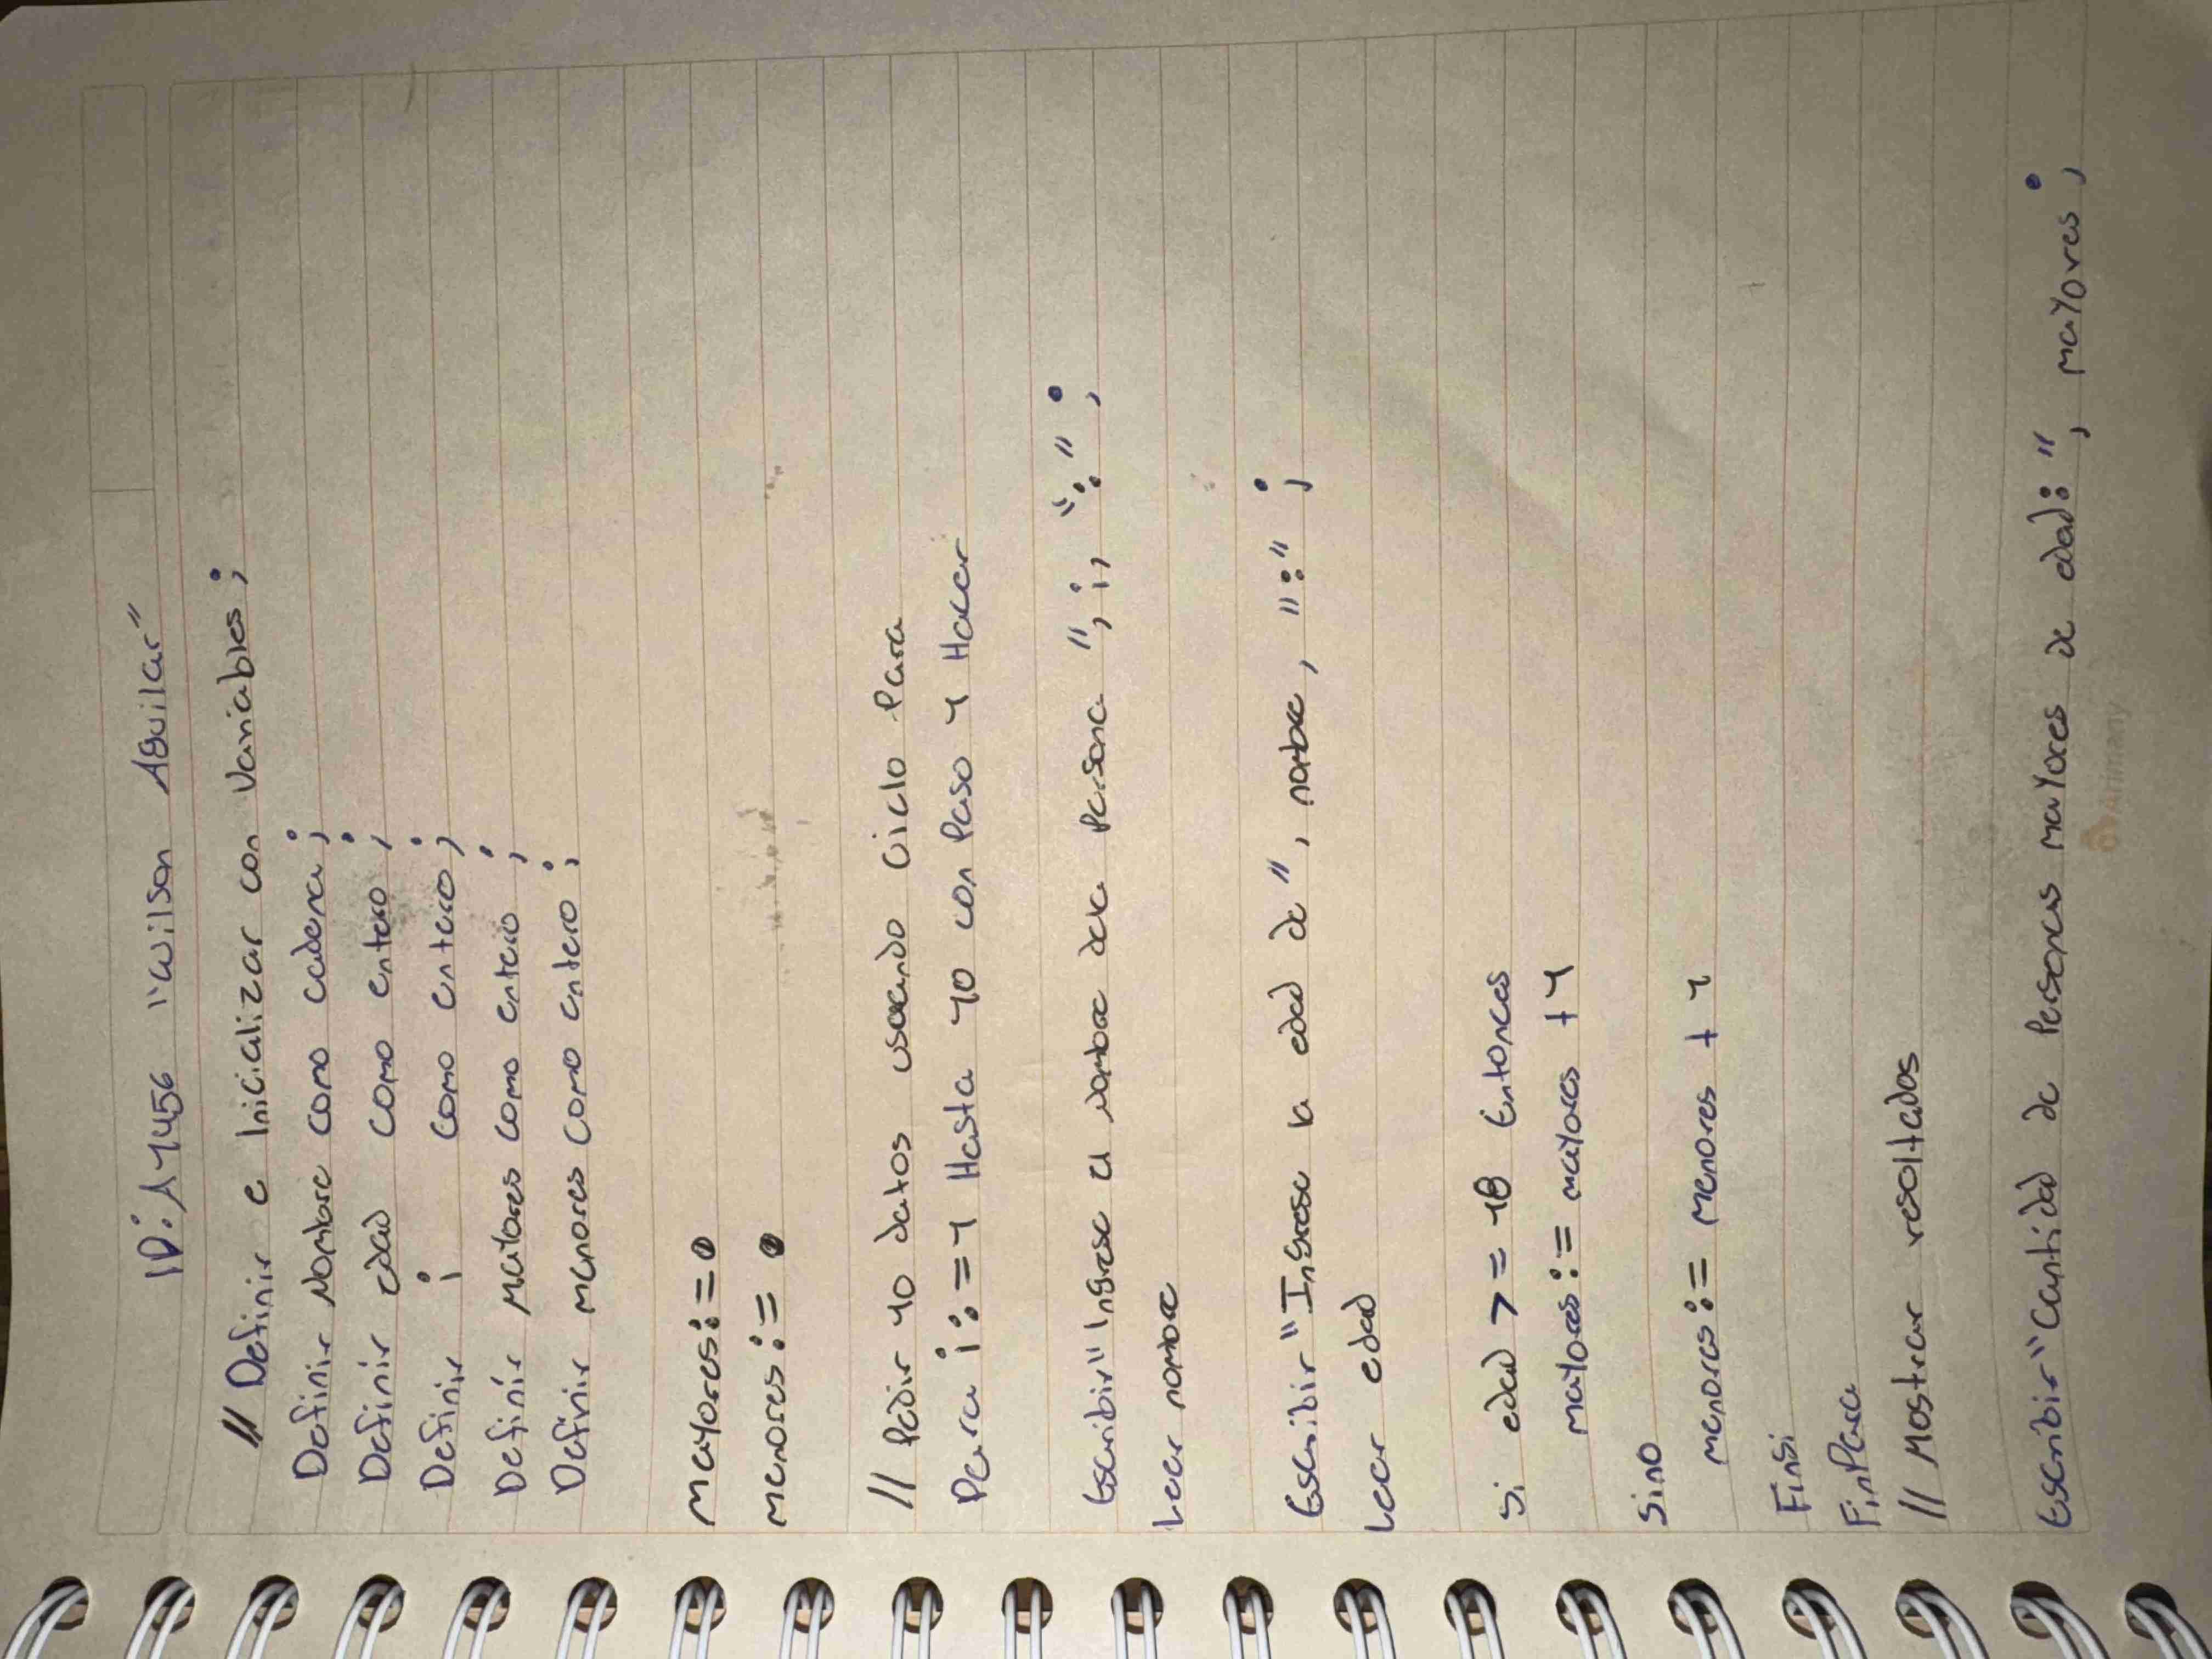 ID: A11456 "Wilson Aguilar"
// Definir e Inicializar con Variables;
Definir Nombre como cadena;
Definir edad como entero;
Definir i como entero;
Definir Mayores como entero;
Definir menores como entero;
Mayores:=0
menores:=0
// Pedir 10 datos usando ciclo Para
Para i:=1 Hasta 10 con Paso 1 Hacer
Escribir "Ingrese el nombre dela Persona ", i, ":";
Leer nombre
Escribir "Ingrese la edad de", nombre, ":";
Leer edad
Si edad >= 18 Entonces
mayores:= mayores +1
Sino
menores:= menores +1
FinSi
FinPara
// Mostrar resoltados
Escribir "Cantidad de Personas mayores de edad:", mayores;
Arimany